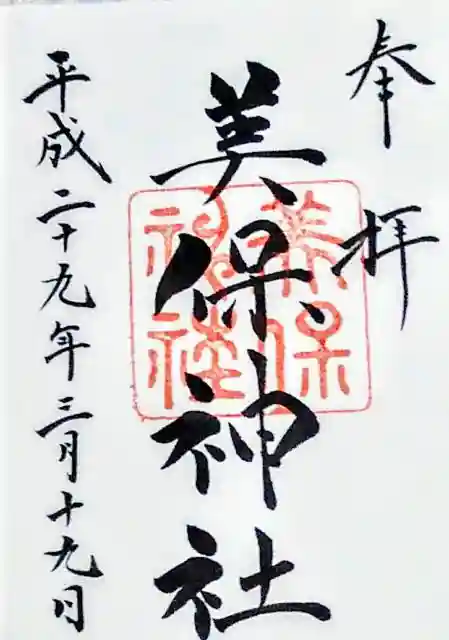 奉拝
美保神社
美保神社
平成二十九年三月十九日